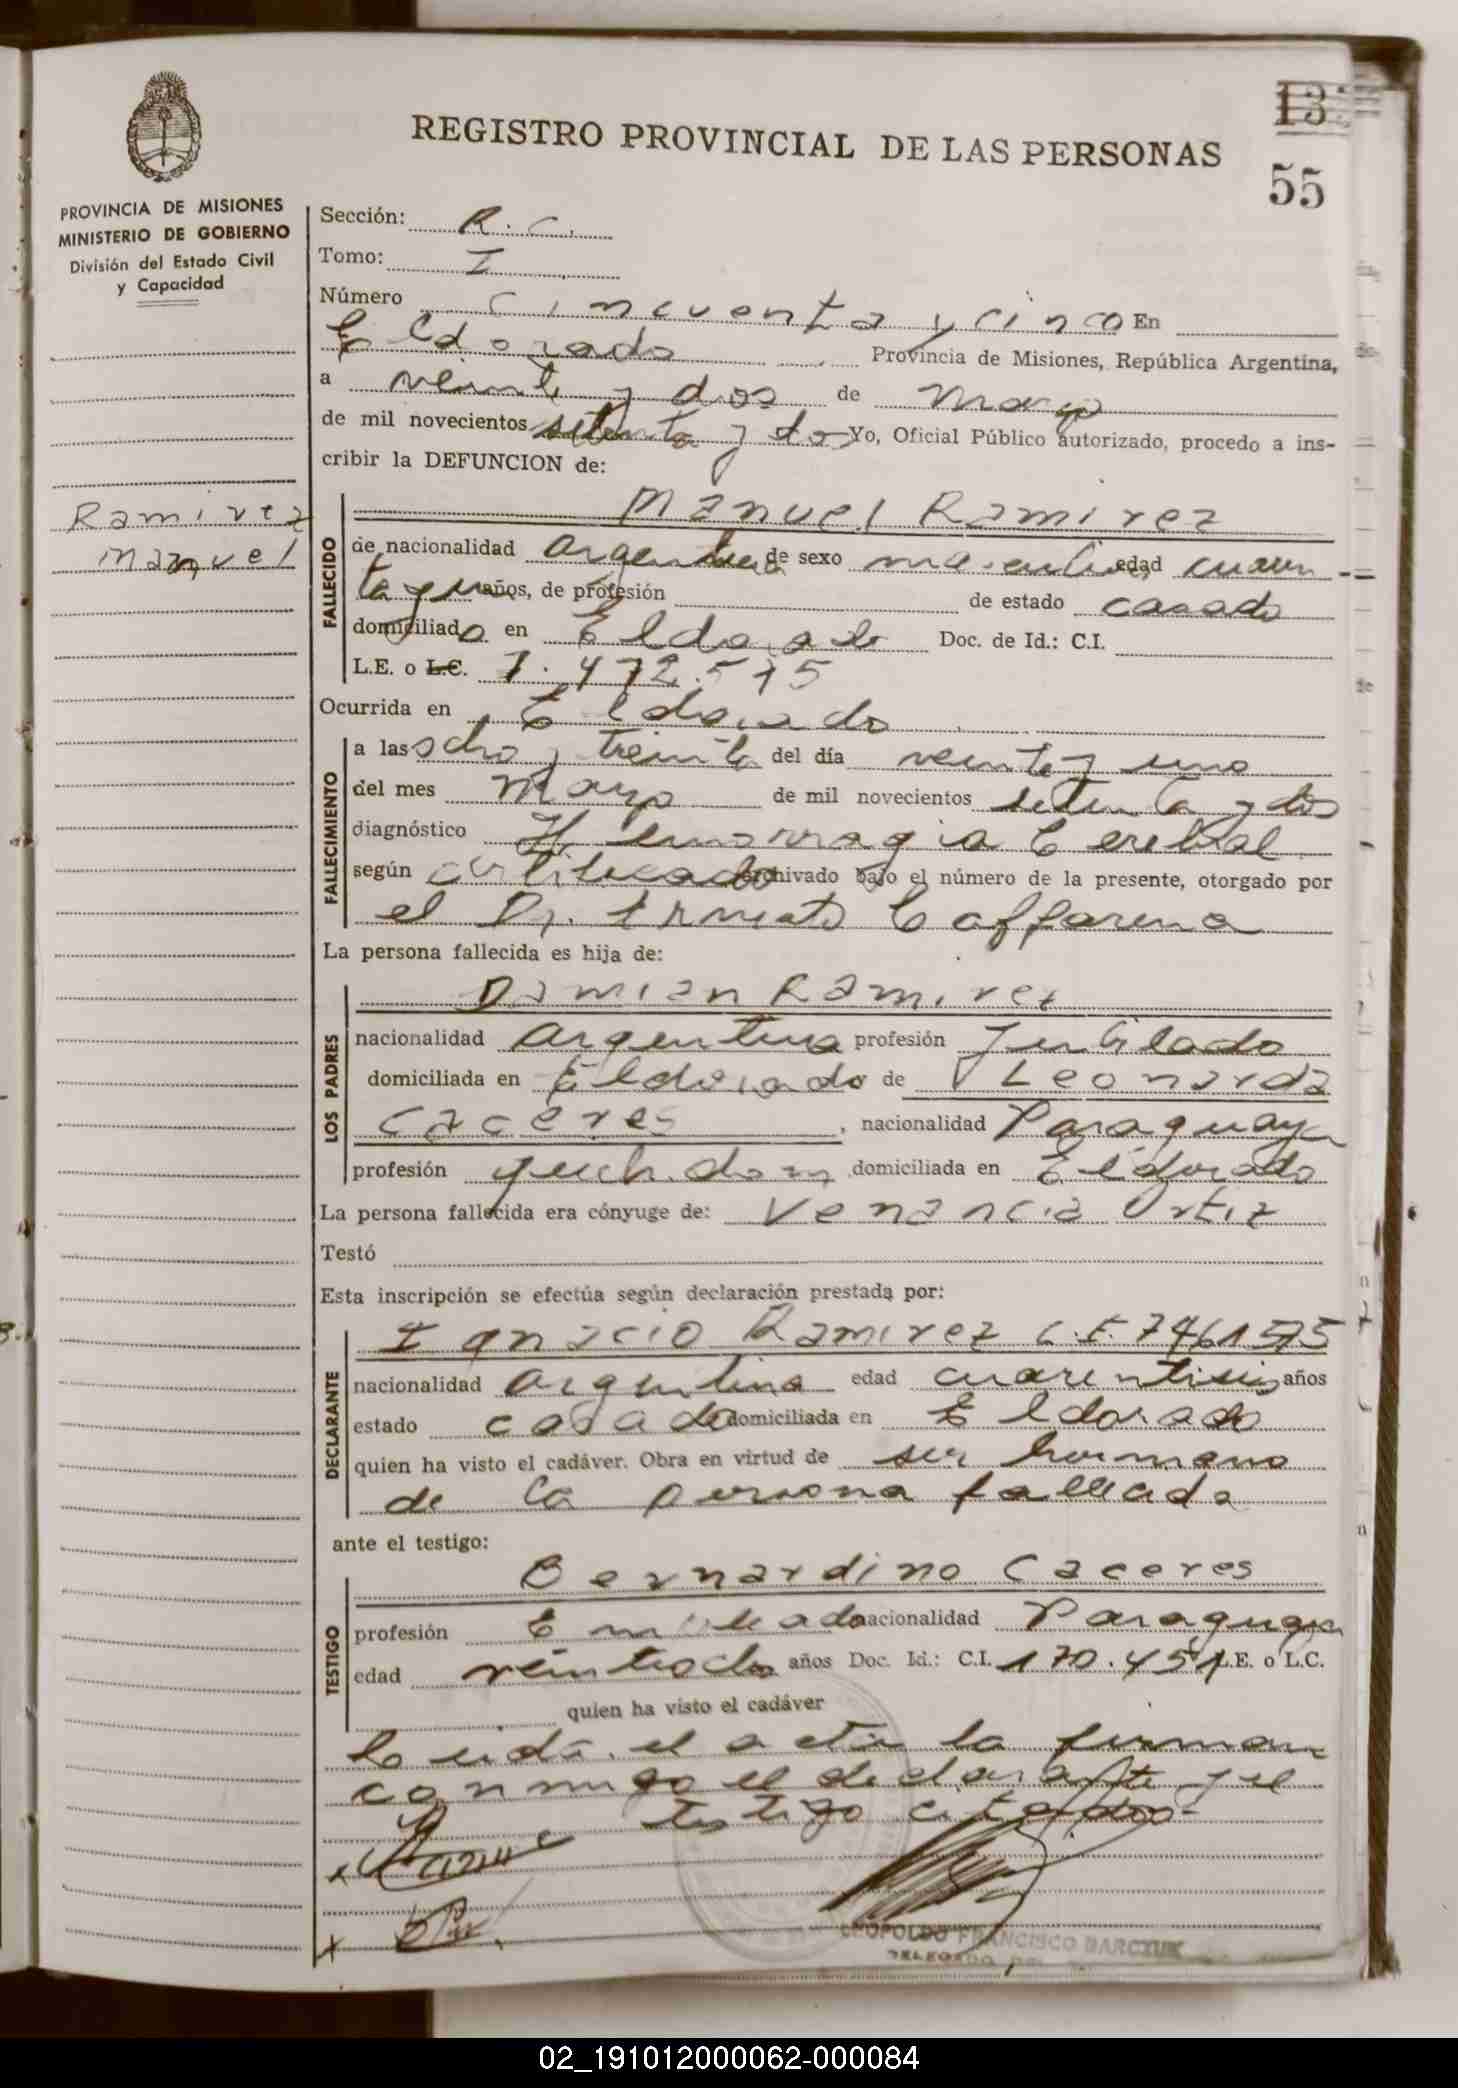 13
55
REGISTRO PROVINCIAL DE LAS PERSONAS
PROVINCIA DE MISIONES
MINISTERIO DE GOBIERNO
División del Estado Civil
y Capacidad
Ramirez
Manuel
Sección: R. C.
Tomo: I
Número Cincuenta y cinco En
Eldorado Provincia de Misiones, República Argentina,
a veinte y dos de mayo
de mil novecientos setenta y dos Yo, Oficial Público autorizado, procedo a ins-
cribir la DEFUNCION de:
FALLECIDO
Manuel Ramirez
de nacionalidad argentina de sexo masculino, edad cuaren
ta y años, de profesión de estado casado
domiciliado en Eldorado Doc. de Id.: C.I.
L.E. o L.C. 7.472.575
Ocurrida en Eldorado
FALLECIMIENTO
a las ocho y treinta del día veinte y uno
del mes Mayo de mil novecientos setenta y dos
diagnóstico Hemorragia Cerebral
según certificado archivado bajo el número de la presente, otorgado por
el Dr. Ernesto Caffarena
La persona fallecida es hija de:
LOS PADRES
Damian Ramirez
nacionalidad argentina profesión Jubilado
domiciliada en Eldorado de Leonarda
Caceres, nacionalidad Paraguaya
profesión domiciliada en Eldorado
La persona fallecida era cónyuge de: Venancia Ortiz
Testó
Esta inscripción se efectúa según declaración prestada por:
DECLARANTE
Ignacio Ramirez L.E. 7461575
nacionalidad argentina edad cuarentiseis años
estado casado domiciliada en Eldorado
quien ha visto el cadáver. Obra en virtud de ser hermano
de la persona fallecida
ante el testigo:
TESTIGO
Bernardino Caceres
profesión Empleado nacionalidad Paraguaya
edad veintiocho años Doc. Id.: C.I. 170.451 L.E. o L.C.
quien ha visto el cadáver
Leida el acta la firman
conmigo el declarante y el
testigo citado-
LEOPOLDO FRANCISCO BARCZUK
DELEGADO
02_191012000062-000084